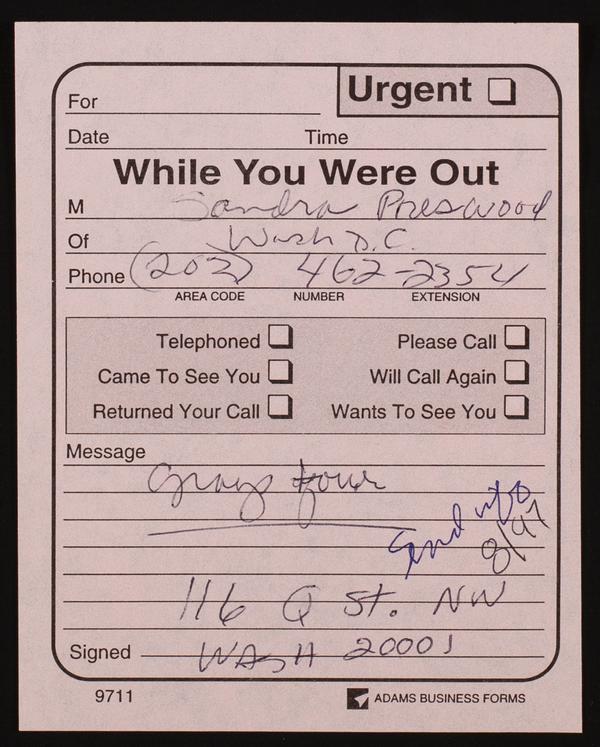 For
Urgent
Date Time
While You Were Out
M Sandra Preswood
Of Wash D.C.
Phone (202) 462-2354
AREA CODE NUMBER EXTENSION
Telephoned Please Call
Came To See You Will Call Again
Returned Your Call Wants To See You
Message
Grays four
Send info
8/97
116 Q St. NW
Signed WASH 20001
9711 ADAMS BUSINESS FORMS